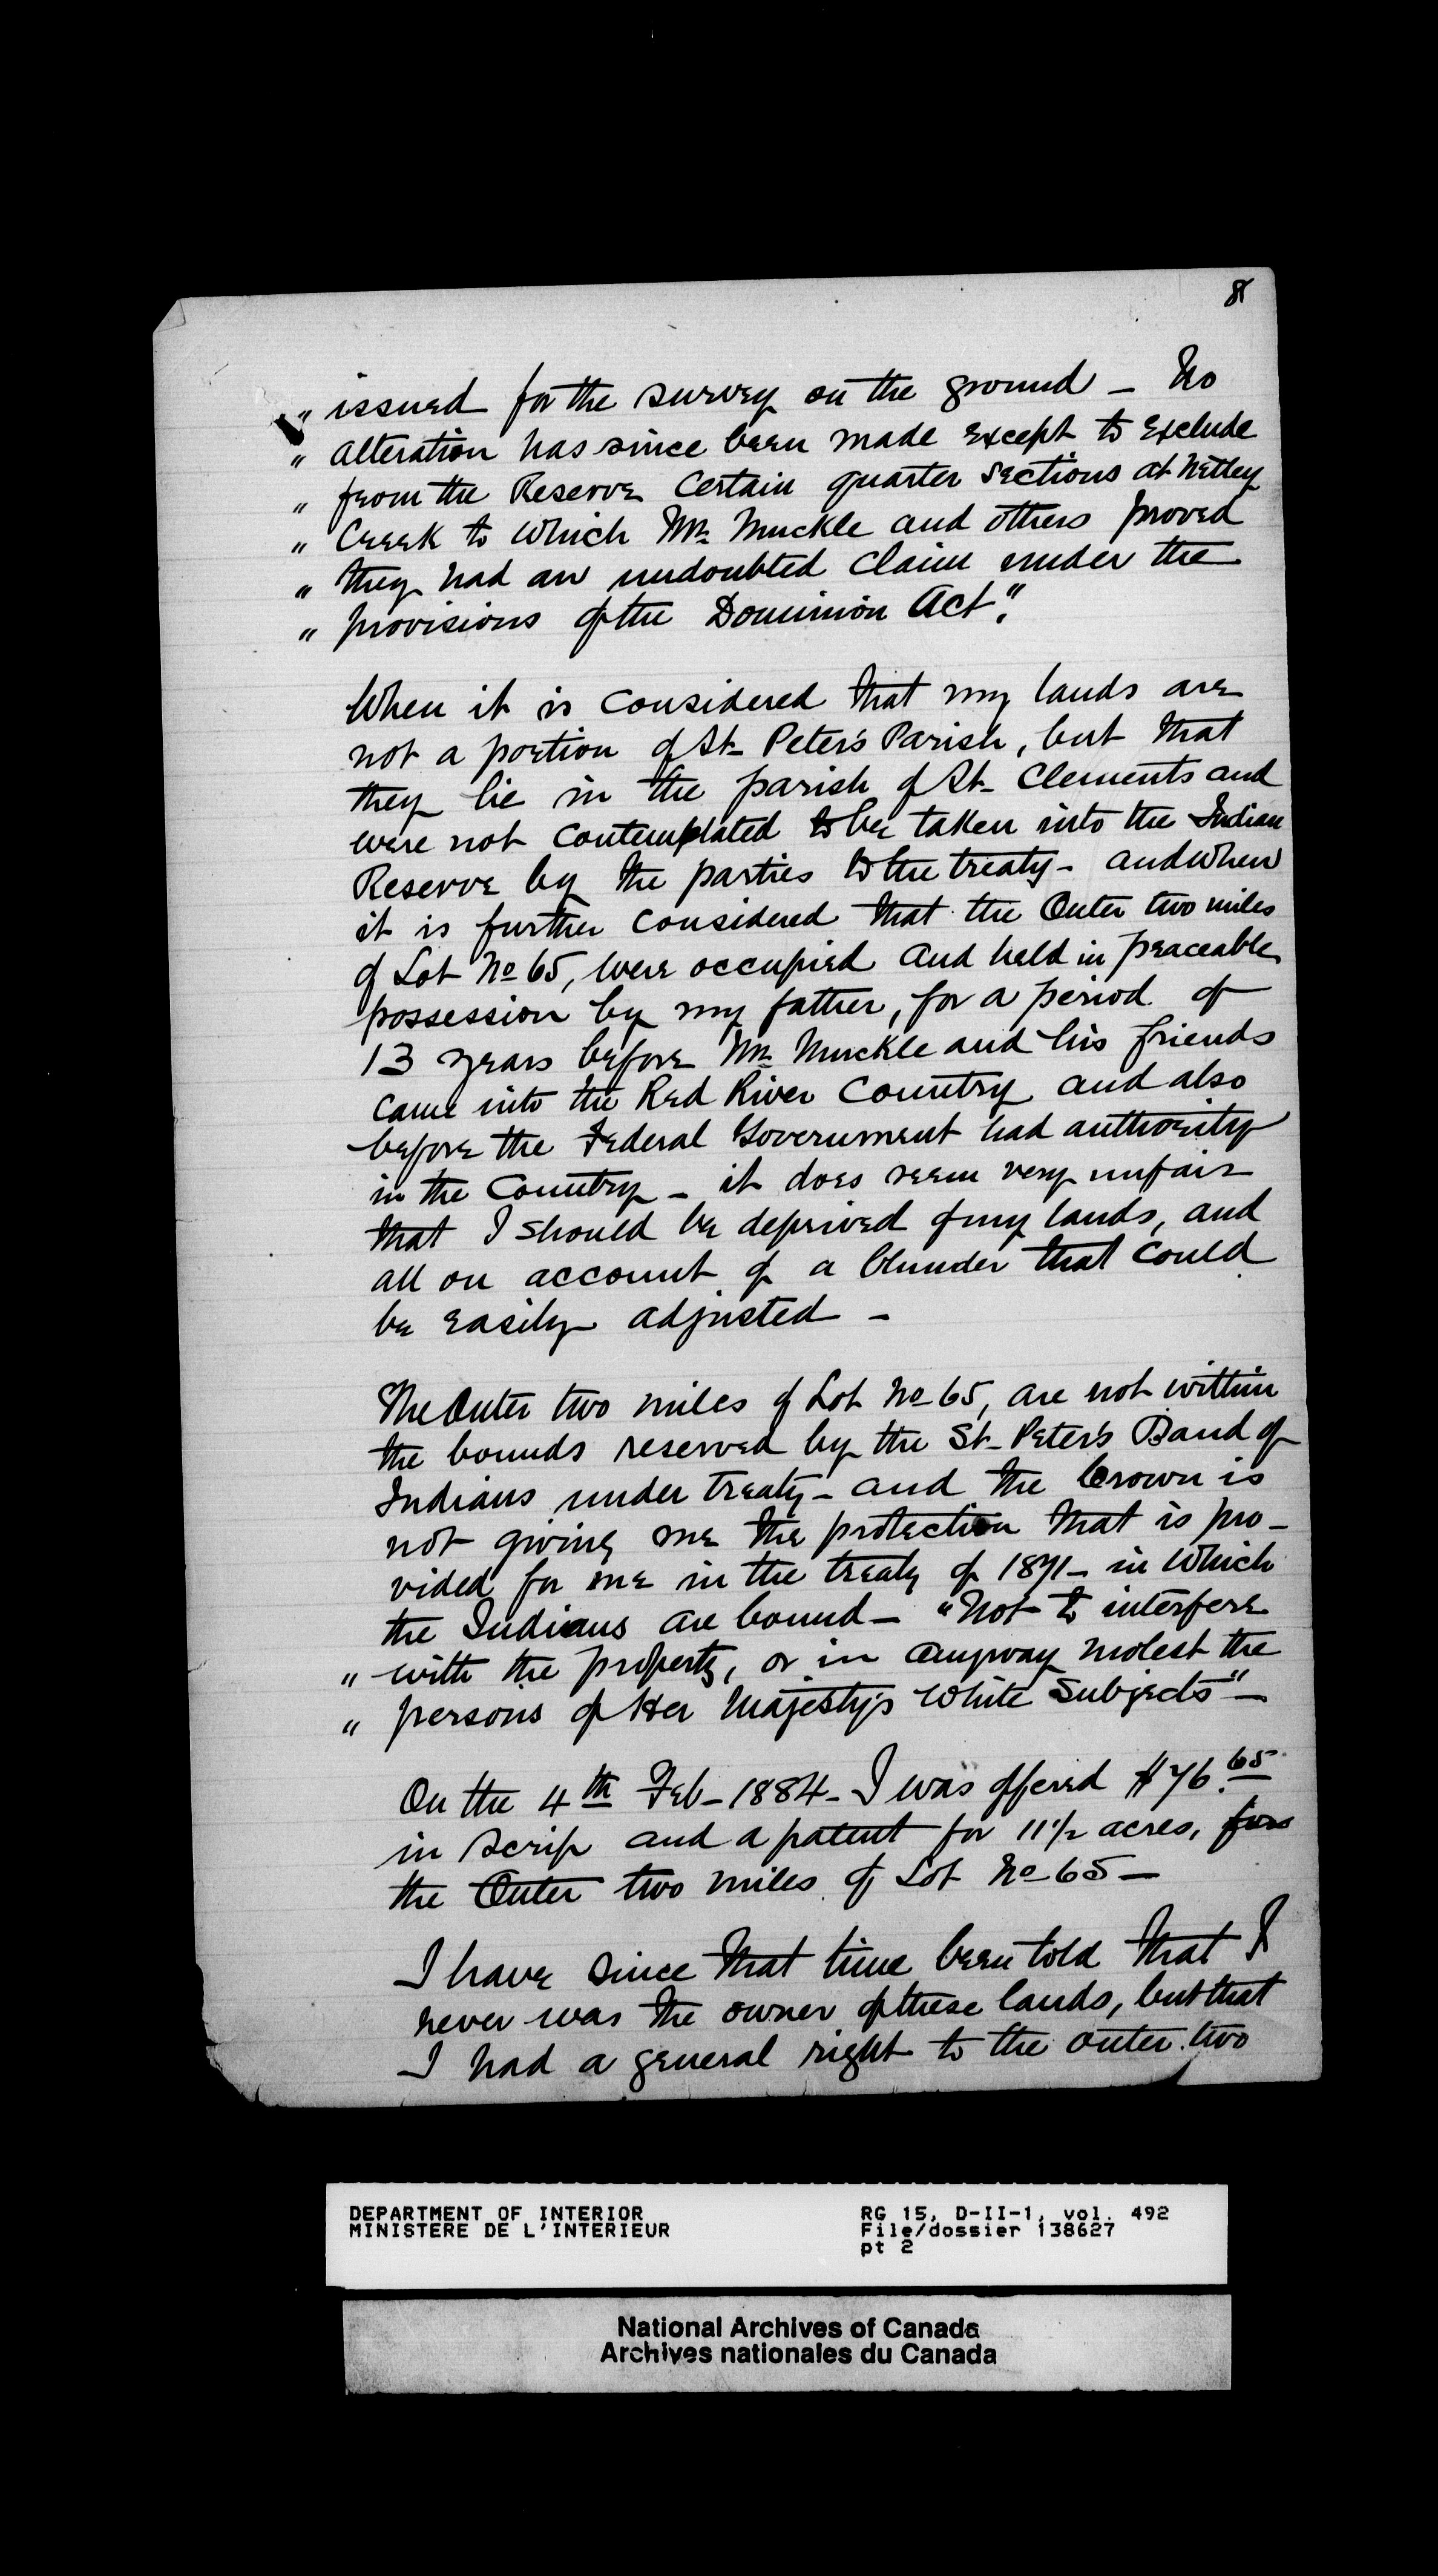 8
" issued for the survey on the ground — No
" alteration has since been made except to exclude
" from the Reserve Certain quarter Sections at Netley
" Creek to which Mr Muckle and others proved
" they had an undoubted Claim under the
" provisions of the Dominion Act".
When it is considered that my lands are
not a portion of St- Peter's Parish, but that
they lie in the parish of St- Clements and
were not contemplated to be taken into the Indian
Reserve by the parties to the treaty - and when
it is further considered that the Outer two miles
of Lot No 65, were occupied and held in peaceable
possession by my father, for a period of
13 years before Mr Muckle and his friends
came into the Red River Country and also
before the Federal Government had authority
in the Country - it does seem very unfair
that I should be deprived of my lands, and
all on account of a blunder that could
be easily adjusted -
The Outer two miles of Lot No 65, are not within
the bounds reserved by the St- Peter's Band of
Indians under treaty - and the Crown is
not giving me the protection that is pro-
vided for me in the treaty of 1871 - in which
the Indians are bound - "Not to interfere
" with the property, or in anyway molest the
" persons of Her Majesty's White Subjects" -
On the 4th Feb - 1884 - I was offered $76.65
in scrip and a patent for 11½ acres, for
the Outer two miles of Lot No 65 -
I have since that time been told that I
never was the owner of these lands, but that
I had a general right to the outer two
DEPARTMENT OF INTERIOR
MINISTERE DE L'INTERIEUR
RG 15, D-II-1, vol. 492
File/dossier 138627
pt 2
National Archives of Canada
Archives nationales du Canada